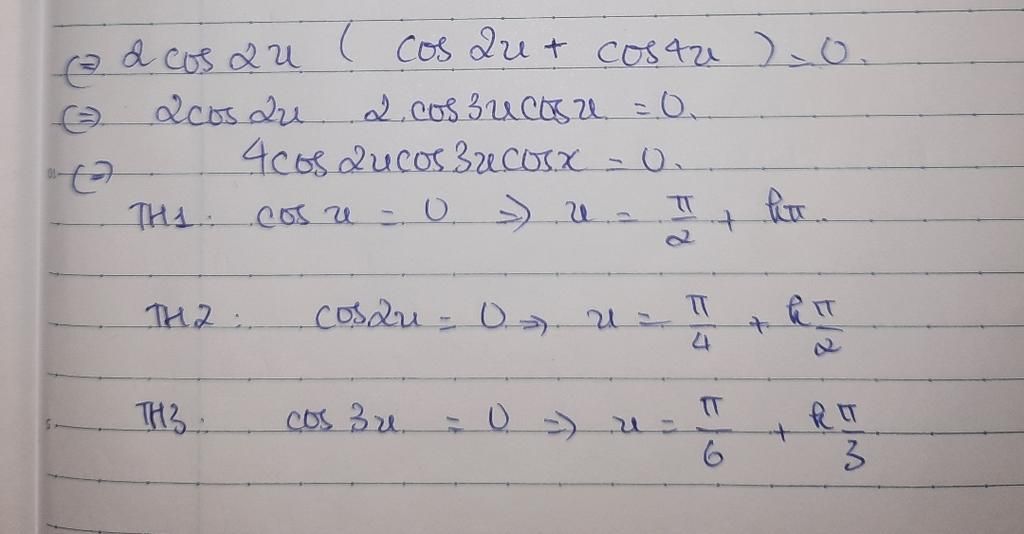 ⇔ 2 cos 2x ( cos 2x + cos 4x ) = 0.
⇔ 2cos 2x 2.cos 3x cos x = 0.
⇔ 4cos 2x cos 3x cos x = 0.
TH1: cos x = 0 ⇒ x = π/2 + kπ.
TH2: cos 2x = 0 ⇒ x = π/4 + kπ/2
TH3: cos 3x = 0 ⇒ x = π/6 + kπ/3